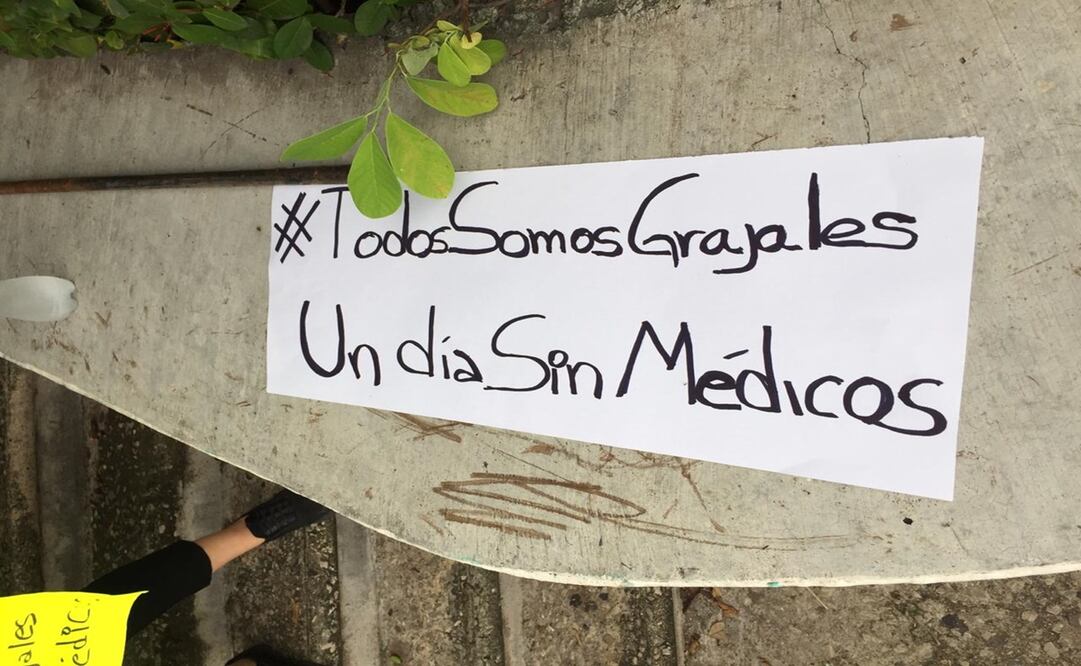 #TodosSomosGrajales
Un día Sin Médicos
ales
édic